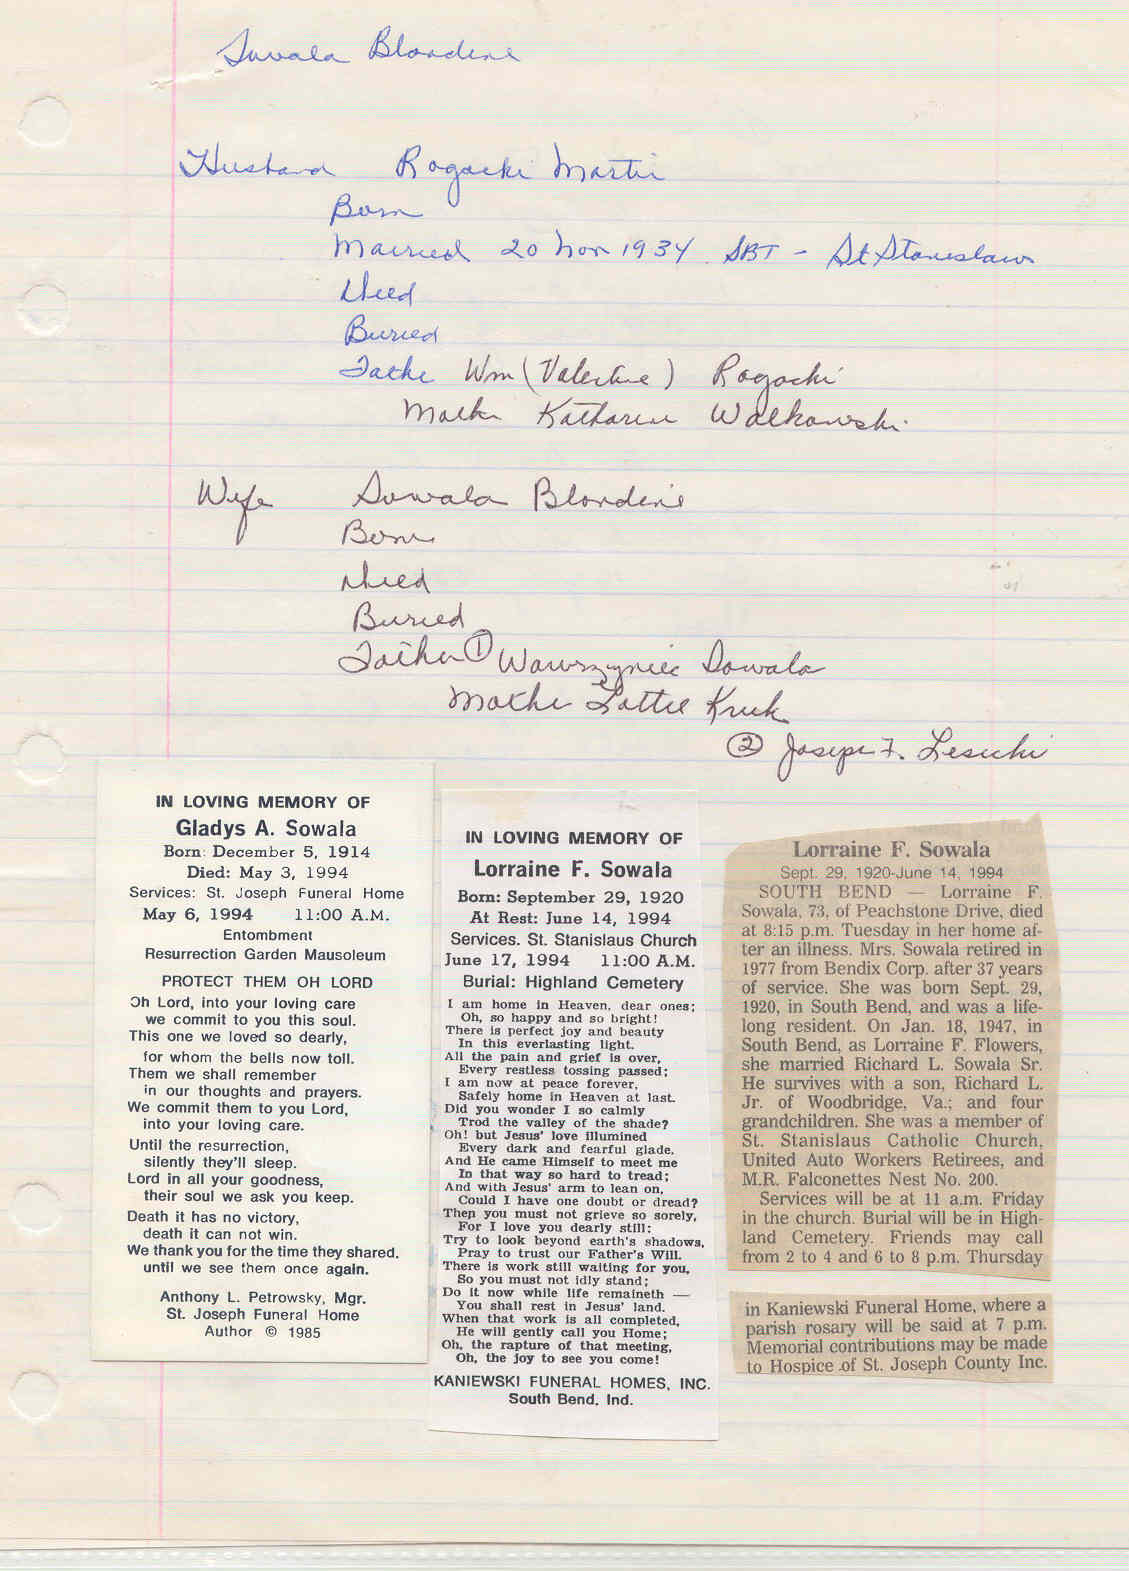 Sowala Blondine
Husband Rogacki Martin
Born
Married 20 Nov 1934 SBT - St Stanislaus
Died
Buried
Father Wm (Valentine) Rogacki
Mother Katharin Walkowski
Wife Sowala Blondine
Born
Died
Buried
Father ① Wawrzyniec Sowala
Mother Lottie Kruk
② Joseph F. Lesicki
IN LOVING MEMORY OF
Gladys A. Sowala
Born: December 5, 1914
Died: May 3, 1994
Services: St. Joseph Funeral Home
May 6, 1994 11:00 A.M.
Entombment
Resurrection Garden Mausoleum
PROTECT THEM OH LORD
Oh Lord, into your loving care
we commit to you this soul.
This one we loved so dearly,
for whom the bells now toll.
Them we shall remember
in our thoughts and prayers.
We commit them to you Lord,
into your loving care.
Until the resurrection,
silently they'll sleep.
Lord in all your goodness,
their soul we ask you keep.
Death it has no victory,
death it can not win.
We thank you for the time they shared.
until we see them once again.
Anthony L. Petrowsky, Mgr.
St. Joseph Funeral Home
Author © 1985
IN LOVING MEMORY OF
Lorraine F. Sowala
Born: September 29, 1920
At Rest: June 14, 1994
Services. St. Stanislaus Church
June 17, 1994 11:00 A.M.
Burial: Highland Cemetery
I am home in Heaven, dear ones;
Oh, so happy and so bright!
There is perfect joy and beauty
In this everlasting light.
All the pain and grief is over,
Every restless tossing passed;
I am now at peace forever,
Safely home in Heaven at last.
Did you wonder I so calmly
Trod the valley of the shade?
Oh! but Jesus' love illumined
Every dark and fearful glade.
And He came Himself to meet me
In that way so hard to tread;
And with Jesus' arm to lean on,
Could I have one doubt or dread?
Then you must not grieve so sorely,
For I love you dearly still:
Try to look beyond earth's shadows,
Pray to trust our Father's Will.
There is work still waiting for you,
So you must not idly stand;
Do it now while life remaineth —
You shall rest in Jesus' land.
When that work is all completed,
He will gently call you Home;
Oh, the rapture of that meeting,
Oh, the joy to see you come!
KANIEWSKI FUNERAL HOMES, INC.
South Bend, Ind.
Lorraine F. Sowala
Sept. 29, 1920-June 14, 1994
SOUTH BEND — Lorraine F.
Sowala, 73, of Peachstone Drive, died
at 8:15 p.m. Tuesday in her home af-
ter an illness. Mrs. Sowala retired in
1977 from Bendix Corp. after 37 years
of service. She was born Sept. 29,
1920, in South Bend, and was a life-
long resident. On Jan. 18, 1947, in
South Bend, as Lorraine F. Flowers,
she married Richard L. Sowala Sr.
He survives with a son, Richard L.
Jr. of Woodbridge, Va.; and four
grandchildren. She was a member of
St. Stanislaus Catholic Church,
United Auto Workers Retirees, and
M.R. Falconettes Nest No. 200.
Services will be at 11 a.m. Friday
in the church. Burial will be in High-
land Cemetery. Friends may call
from 2 to 4 and 6 to 8 p.m. Thursday
in Kaniewski Funeral Home, where a
parish rosary will be said at 7 p.m.
Memorial contributions may be made
to Hospice of St. Joseph County Inc.